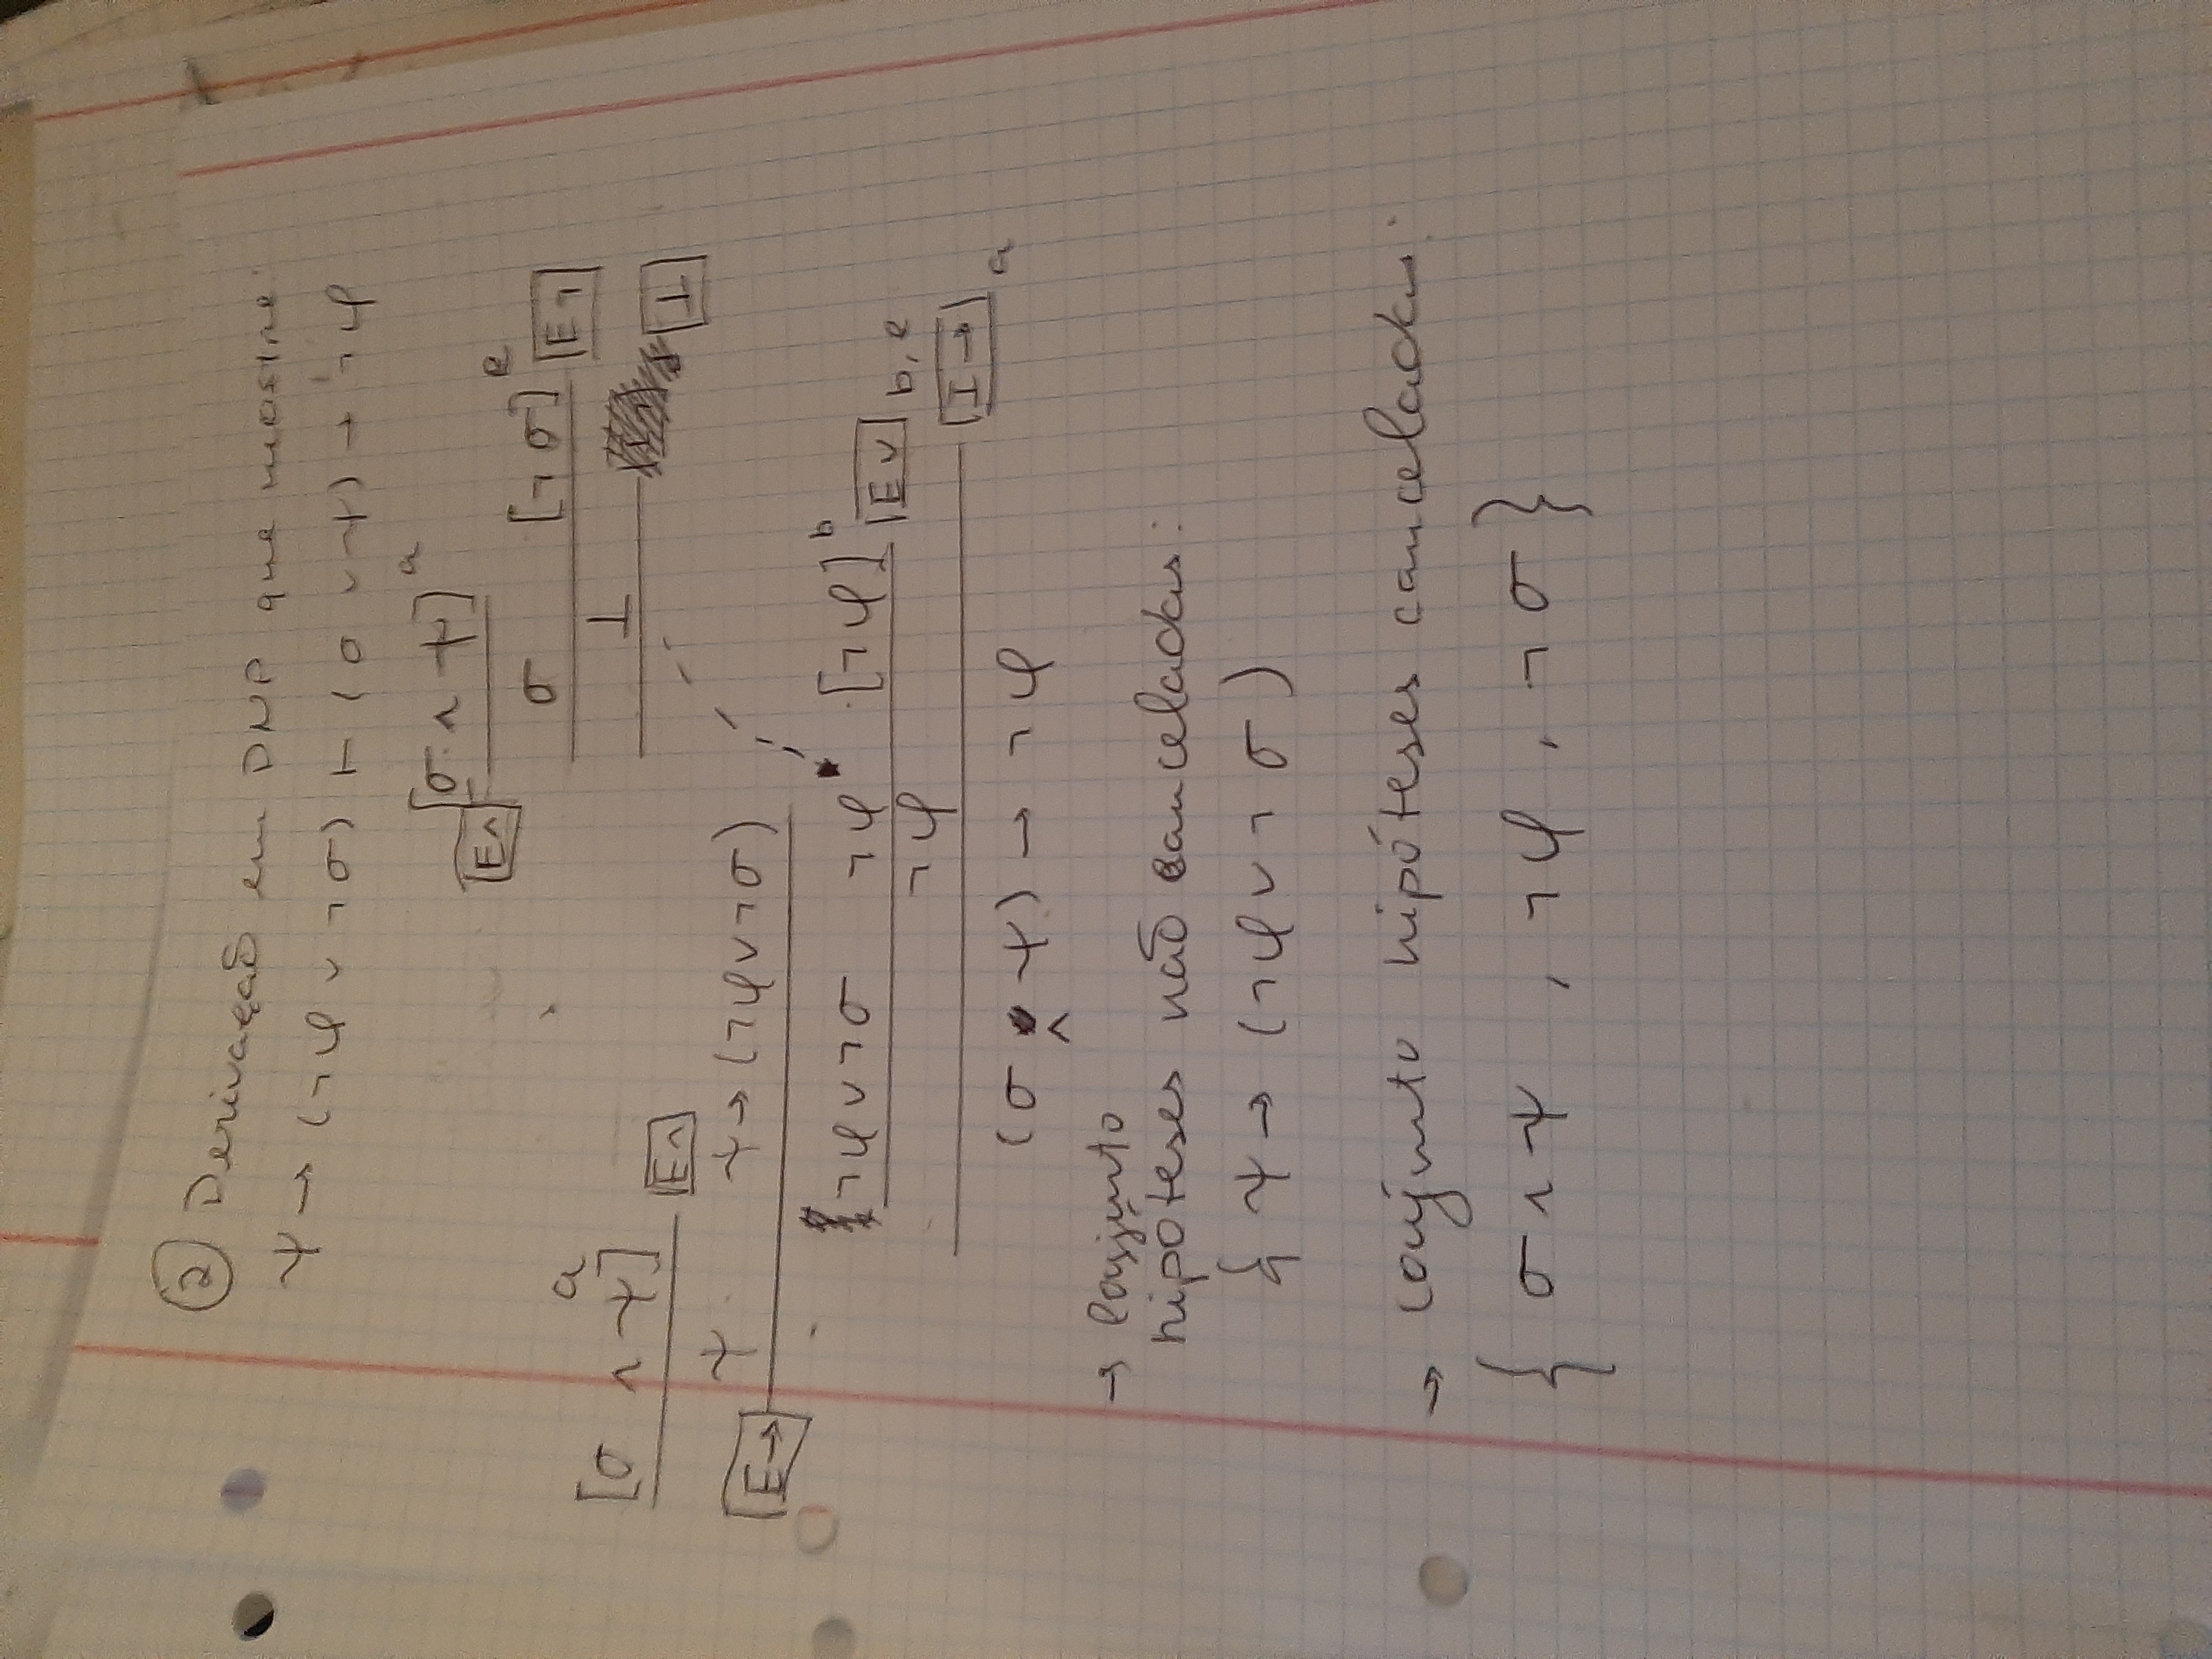 ② Derivação em DNP que mostre:
ψ → (¬φ ∨ ¬σ) ⊢ (σ ∨ ψ) → ¬φ
[σ ∧ ψ]ᵃ
E∧
σ [¬σ]ᶜ E¬
⊥
⊥
[σ ∧ ψ]ᵃ
E∧
ψ ψ → (¬φ ∨ ¬σ)
E→
¬φ ∨ ¬σ ¬φ [¬φ]ᵇ E∨ b, c
¬φ
I→ a
(σ ∧ ψ) → ¬φ
→ Conjunto
hipóteses não canceladas:
{ ψ → (¬φ ∨ ¬σ)
→ conjunto hipóteses canceladas:
{ σ ∧ ψ , ¬φ , ¬σ }